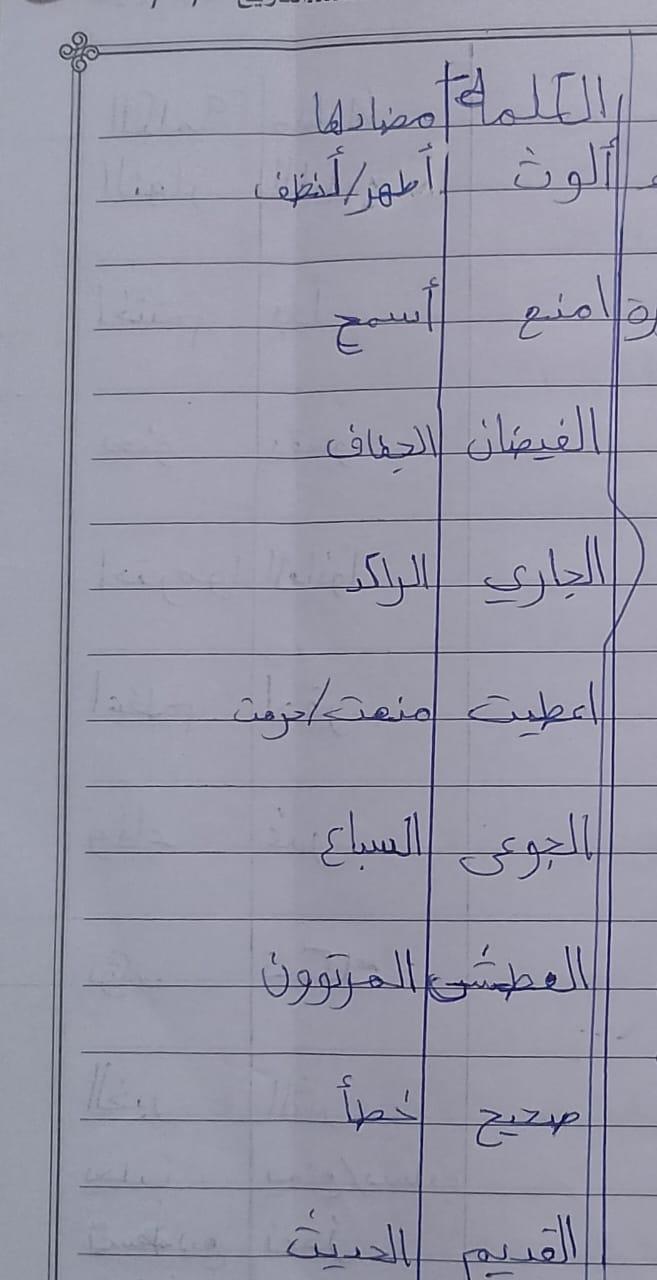 الكلمة مضادها
ألوث أطهر/أنظف
امنع أسمح
الفيضان الجفاف
الجاري الراكد
اعطيت منعت/حرمت
الجوعى السباع
العطشى المرتوون
صحيح خطأ
القديم الحديث